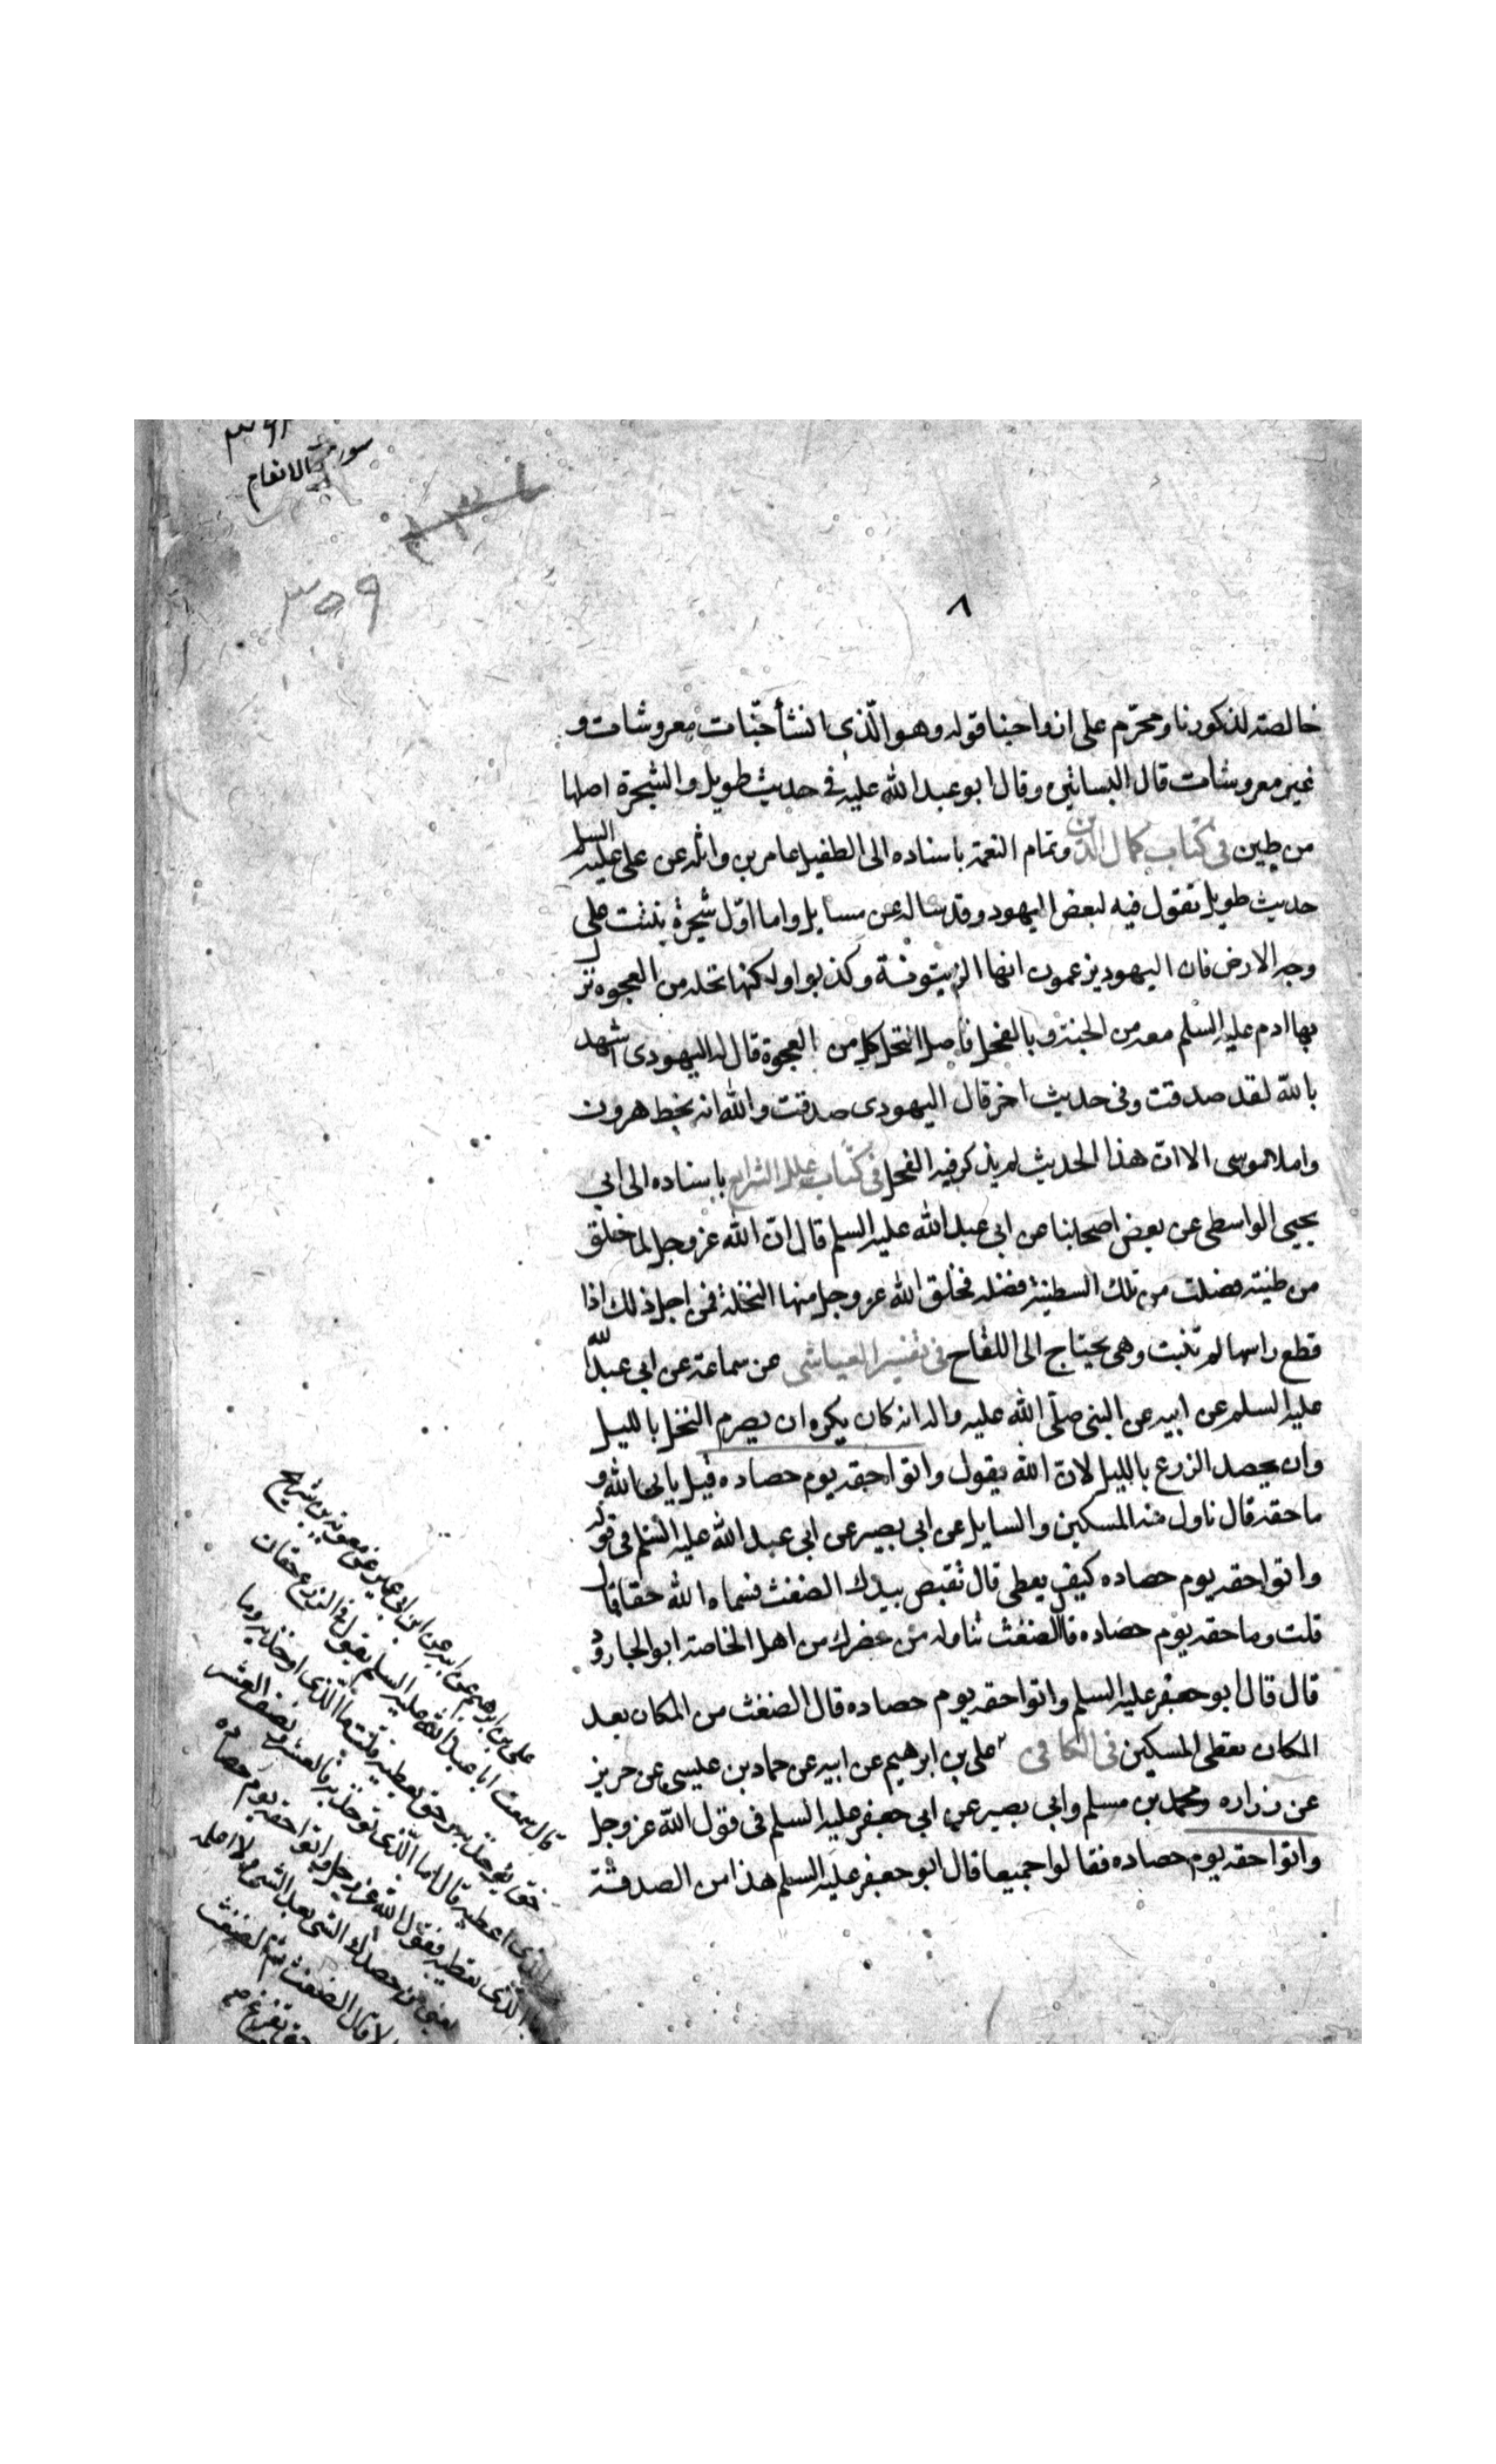 سورة الانعام
٣٥٩
٨
خالصة لذكورنا ومحرم على ازواجنا قوله وهو الّذى انشأ جنّات معروشات و
غير معروشات قال البساتين وقال ابو عبد الله عليه فى حديث طويل والشجرة اصلها
من طين فى كتاب كمال الدين وتمام النعمة باسناده الى الطفيل عامر بن واثله عن على عليه السلم
حديث طويل تقول فيه لبعض اليهود وقد ساله عن مسايل واما اوّل شجرة نبتت على
وجه الارض فان اليهود يزعمون انها الزيتونة وكذبوا ولكنها نخله من العجوة نزل
بها ادم عليه السلم معه من الجنة وبالفحل فاصل النخل كله من العجوة قال له اليهودى اشهد
بالله لقد صدقت وفى حديث اخر قال اليهودى صدقت والله انه بخط هرون
واملا موسى الا ان هذا الحديث لم يذكر فيه الفحل فى كتاب علل الشرايع باسناده الى ابى
يحيى الواسطى عن بعض اصحابنا عن ابى عبد الله عليه السلم قال ان الله عز وجل لما خلق
من طينته فضلت من تلك الطينة فضله فخلق الله عز وجل منها النخلة فمن اجل ذلك اذا
قطع راسها لم تنبت وهى يحتاج الى اللقاح فى تفسير العياشى عن سماعة عن ابى عبد الله
عليه السلم عن ابيه عن النبى صلّى الله عليه واله انه كان يكره ان يصرم النخل بالليل
وان يحصد الزرع بالليل لان الله يقول واتوا حقه يوم حصاده قيل يا نبى الله و
ما حقه قال ناول منه المسكين والسايل عن ابى بصير عن ابى عبد الله عليه السلم فى قوله
واتوا حقه يوم حصاده كيف يعطى قال تقبض بيدك الضغث فسماه الله حقا قال
قلت وما حقه يوم حصاده قال الضغث تناوله من حضرك من اهل الخاصة ابو الجارود
قال قال ابو جعفر عليه السلم واتوا حقه يوم حصاده قال الضغث من المكان بعد
المكان يعطى المسكين فى الكافى على بن ابرهيم عن ابيه عن حماد بن عليسى عن حريز
عن زراره ومحمد بن مسلم وابى بصير عن ابى جعفر عليه السلم فى قول الله عز وجل
واتوا حقه يوم حصاده فقالوا جميعا قال ابو جعفر عليه السلم هذا من الصدقة
على بن ابرهيم عن ابيه عن ابن ابى عمير عن معوية بن شريح
قال سمعت ابا عبد الله عليه السلم يقول فى الزرع حقان
حق يؤخذ به وحق تعطيه قلت ما الّذى اوخذ به وما
الّذى اعطيه قال اما الّذى تؤخذ به فالعشر ونصف العشر
الّذى تعطيه فقول الله عز وجل واتوا حقه يوم حصاده
يعنى من حصدك الشى بعد الشى ولا اعلمه
الا قال الضغث ثم الضغث
حتى يفرغ